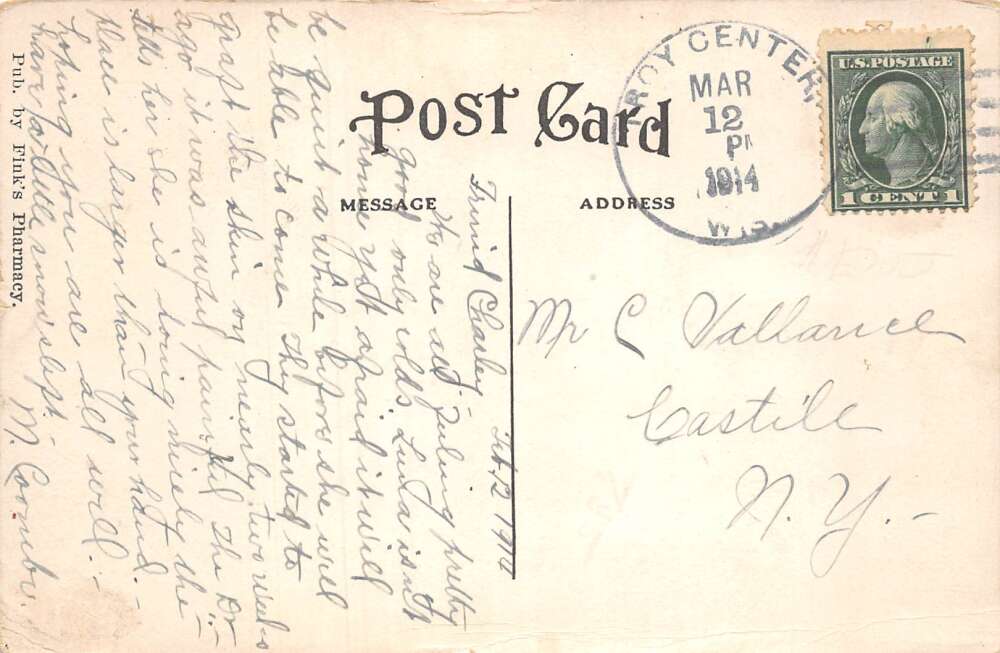 Post Card
MESSAGE
ADDRESS
TROY CENTER,
MAR
12
PM
1914
WIS.
U.S. POSTAGE
1 CENT 1
Mr C Vallance
Castile
N. Y. -
Friend Charley
We are all fuling pretty
good only colds. Luta isnt
home yet afraid it will
be quint a while before she will
be able to come They started to
graft the skin on nearly two weeks
ago it was awful painful The Dr
tells her she is doing nicely the
place is larger than your hand. -
hoping you are all well. -
have a little snow slept -
M.
Pub. by Fink's Pharmacy.